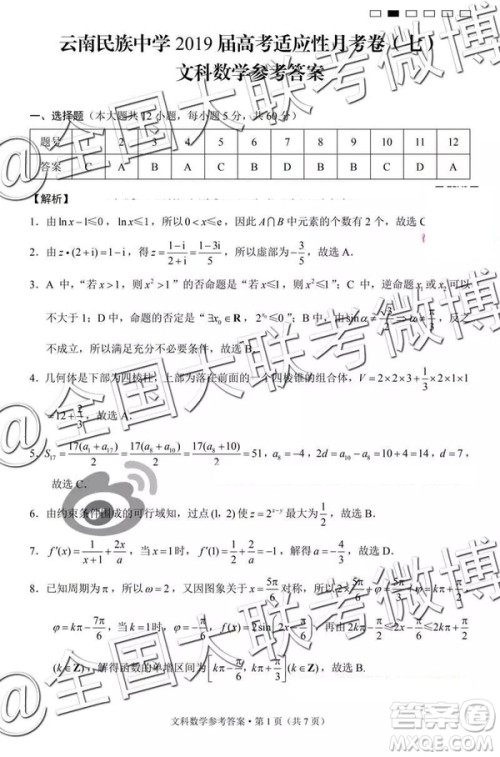 云南民族中学2019届高考适应性月考卷（七）
文科数学参考答案
一、选择题（本大题共12小题，每小题5分，共60分）
题号 1 2 3 4 5 6 7 8 9 10 11 12
答案 C A B A C B D B B C D A
【解析】
1．由ln x−1≤0，ln x≤1，所以0<x≤e，因此A∩B中元素的个数有2个，故选C
2．由z•(2+i)=1−i，得z=(1−i)/(2+i)=(1−3i)/5，所以虚部为−3/5，故选A．
3．A中，“若x>1，则x²>1”的否命题是“若x≤1，则x²≤1”；C中，逆命题x₁或x₂可以
不大于1；D中，命题的否定是“∃x₀∈R，
；B中由sin α≠
，反之
不成立，所以满足必要不充分条件，故选B．
4．几何体是下部为四棱柱，上部为落在前面的一个四棱锥的组合体，V=2×2×3+1/3×2×1×1
=12+2/3，故选A．
5．S₁₇=17(a₁+a₁₇)/2=17(a₈+a₁₀)/2=17(a₈+10)/2=51，a₈=−4，2d=a₁₀−a₈=10+4=14，d=7，
故选C．
6．由约束条件围成的可行域知，过点(1, 2)使z=2ˣ⁻ʸ最大为1/2，故选B．
7．f′(x)=1/(x+1)+2x/a，当x=1时，f′(1)=1/2+2/a=1，解得a=4，故选D．
8．已知周期为π，所以ω=2，又因图象关于x=5π/6对称，所以
φ=kπ−7π/6，当k=1时，φ=−π/6，
，再由2kπ−π/2≤2x−π/6≤2kπ+π/2
(k∈Z)，函数的单增区间为[kπ−π/6，kπ+π/3](k∈Z)，故选B．
文科数学参考答案·第1页（共7页）
@全国大联考微博
@全国大联考微博
@全国大联考微博